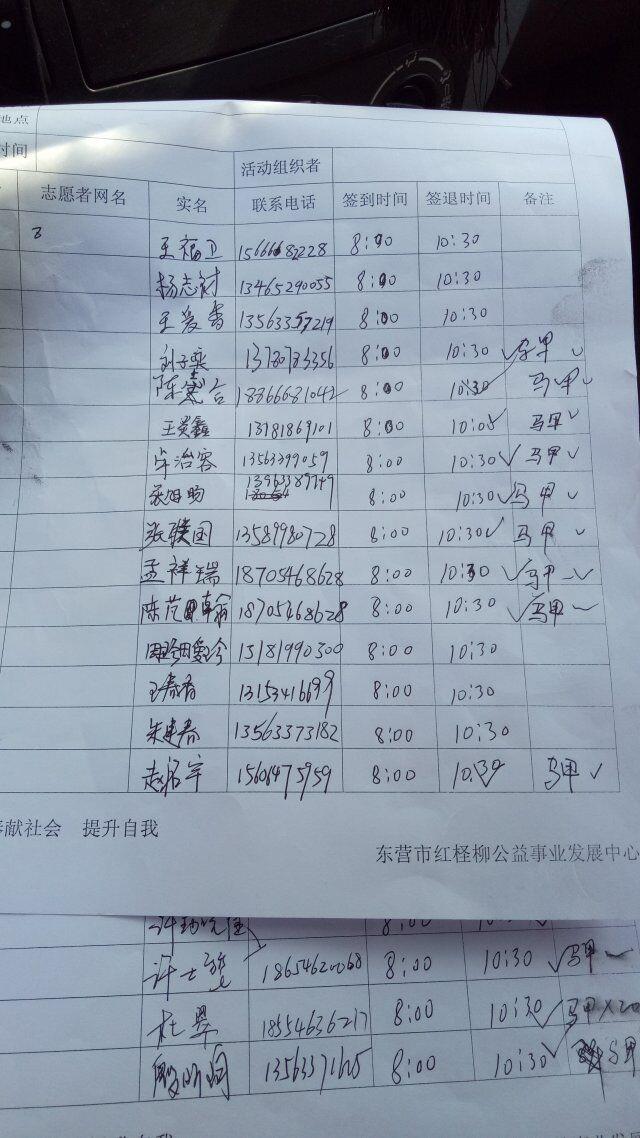 地点
时间
活动组织者
志愿者网名 实名 联系电话 签到时间 签退时间 备注
王福卫 15666682228 8:00 10:30
杨志刚 13465290055 8:00 10:30
王爱香 13563357219 8:00 10:30
刘子奕 13780783356 8:00 10:30 马甲 ✓
陈 台 18866681042 8:00 10:30 马甲 ✓
王 鑫 13181869101 8:00 10:05 马甲 ✓
牟治容 13563399059 8:00 10:30 ✓ 马甲 ✓
13963389749 8:00 10:30 ✓ 马甲 ✓
张 国 13589980728 8:00 10:30 ✓ 马甲 ✓
孟祥瑞 18705468628 8:00 10:30 ✓ 马甲 ✓
陈范 翰 18705468628 8:00 10:30 ✓ 马甲
珍 15181990300 8:00 10:30
王春香 13153416699 8:00 10:30
朱建春 13563373182 8:00 10:30
赵 军 15606475959 8:00 10:30 马甲 ✓
奉献社会 提升自我
东营市红柽柳公益事业发展中心
8:00
许士 18654620068 8:00 10:30 ✓ 马甲
杜 18554636217 8:00 10:30 ✓ 马甲×20
8:00 10:30 ✓ 甲